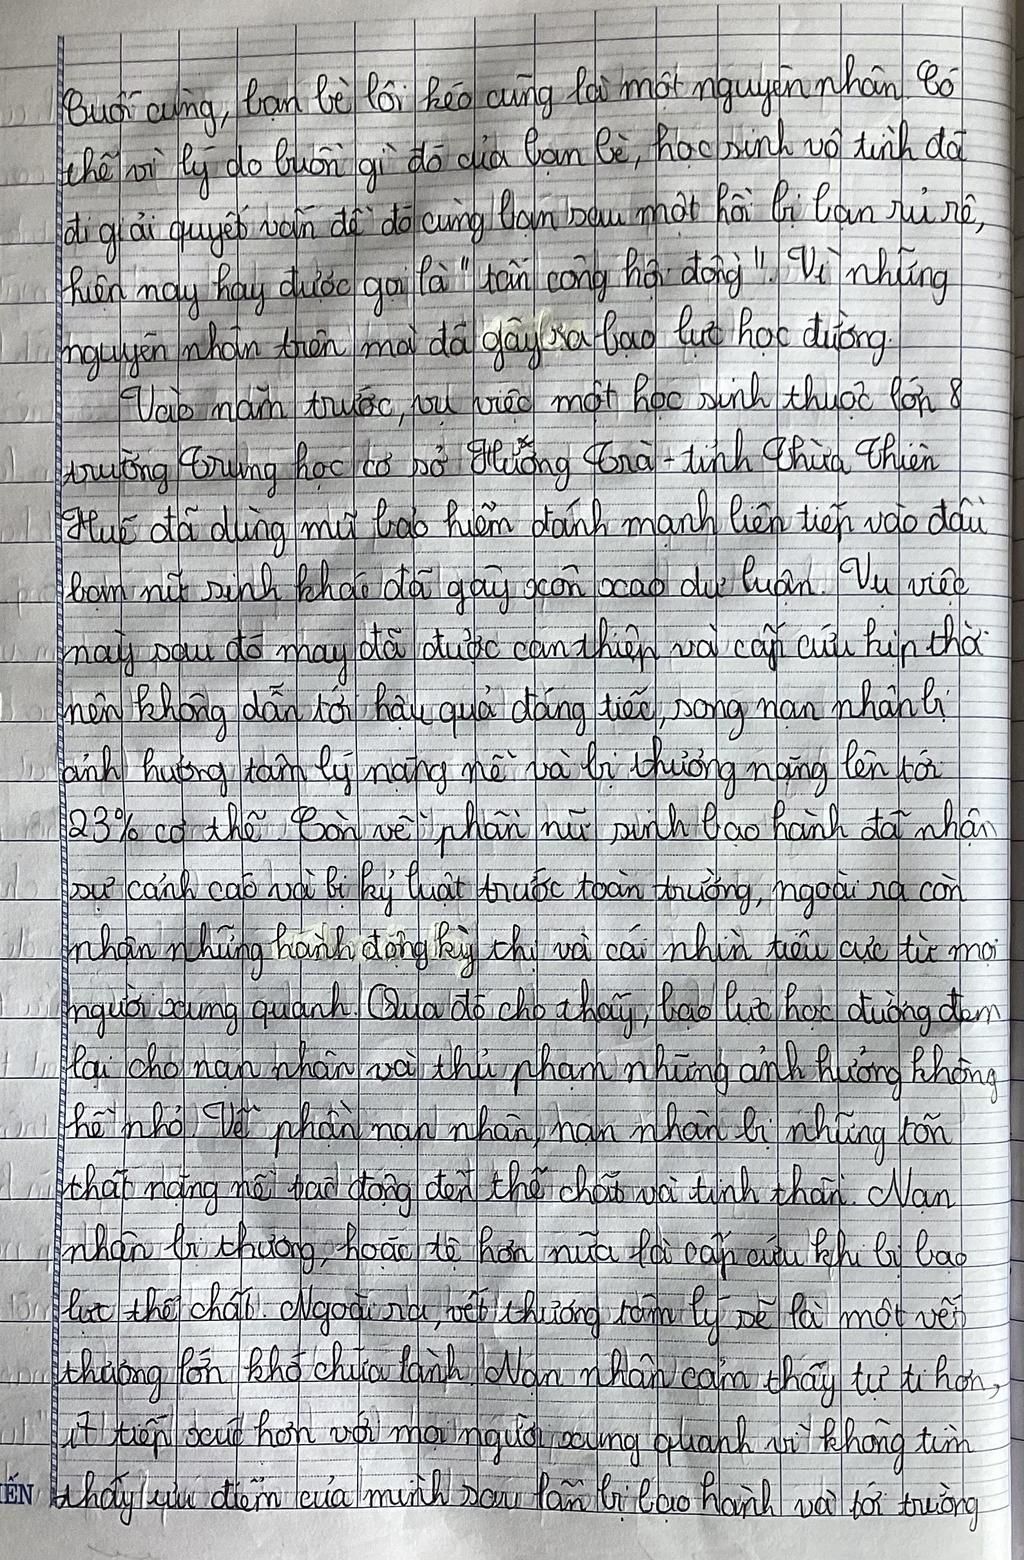 Cuối cùng, bạn bè lôi kéo cũng là một nguyên nhân. Có
thể vì lý do buồn gì đó của bạn bè, học sinh vô tình đã
đi giải quyết vấn đề đó cùng bạn sau một hồi bị bạn rủ rê,
hiện nay hay được gọi là "tấn công hội đồng". Vì những
nguyên nhân trên mà đã gây ra bạo lực học đường.
Vào năm trước, vụ việc một học sinh thuộc lớp 8
trường Trung học cơ sở Hương Trà - tỉnh Thừa Thiên
Huế đã dùng mũ bảo hiểm đánh mạnh liên tiếp vào đầu
bạn nữ sinh khác đã gây xôn xao dư luận. Vụ việc
này sau đó may đã được can thiệp và cấp cứu kịp thời
nên không dẫn tới hậu quả đáng tiếc, song nạn nhân bị
ảnh hưởng tâm lý nặng nề và bị thương nặng lên tới
23% cơ thể. Còn về phần nữ sinh bạo hành đã nhận
sự cảnh cáo và bị kỷ luật trước toàn trường, ngoài ra còn
nhận những hành động kỳ thị và cái nhìn tiêu cực từ mọi
người xung quanh. Qua đó cho thấy, bạo lực học đường đem
lại cho nạn nhân và thủ phạm những ảnh hưởng không
hề nhỏ. Về phần nạn nhân, nạn nhân bị những tổn
thất nặng nề tác động đến thể chất và tinh thần. Nạn
nhân bị thương, hoặc tệ hơn nữa là cấp cứu khi bị bạo
lực thể chất. Ngoài ra, vết thương tâm lý sẽ là một vết
thương lớn khó chữa lành. Nạn nhân cảm thấy tự ti hơn,
ít tiếp xúc hơn với mọi người xung quanh vì không tìm
thấy ưu điểm của mình sau lần bị bạo hành và tới trường
ẾN